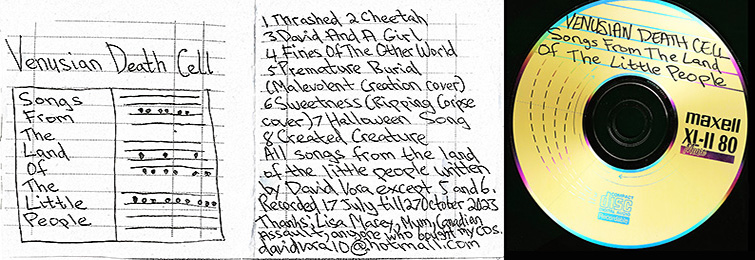 Venusian Death Cell
Songs
From
The
Land
Of
The
Little
People
1 Thrashed 2 Cheetah
3 David And A Girl
4 Fines Of The Other World
5 Premature Burial
(Malevolent Creation cover)
6 Sweetness (Ripping Corpse
cover) 7 Halloween Song
8 Created Creature
All songs from the land
of the little people written
by David Vora except 5 and 6.
Recorded 17 July till 27 October 2023
Thanks, Lisa Macey, Mum, Canadian
Assault, anyone who bought my CDs.
davidvora10@hotmail.com
VENUSIAN DEATH CELL
Songs From The Land
Of The Little People
maxell
XL-II 80
Music
disc
Recordable